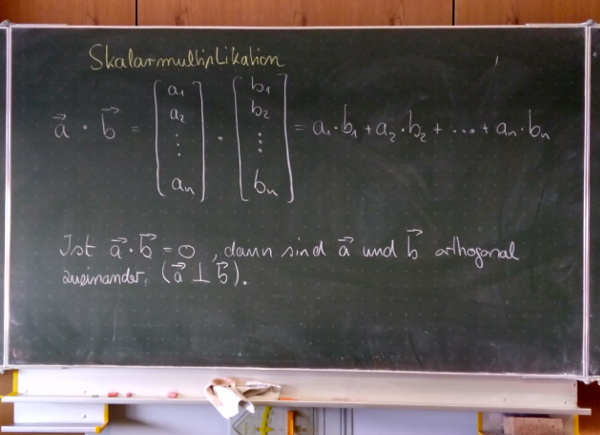 Skalarmultiplikation
a⃗ · b⃗ = [a₁ a₂ ⋮ aₙ] · [b₁ b₂ ⋮ bₙ] = a₁·b₁ + a₂·b₂ + .... + aₙ·bₙ
Ist a⃗ · b⃗ = 0, dann sind a⃗ und b⃗ orthogonal
zueinander. (a⃗ ⊥ b⃗).